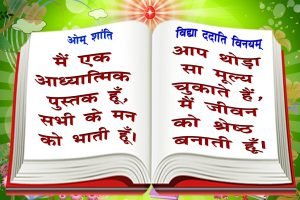 ओम् शांति
मैं एक
आध्यात्मिक
पुस्तक हूँ,
सभी के मन
को भाती हूँ।
विद्या ददाति विनयम्
आप थोड़ा
सा मूल्य
चुकाते हैं,
मैं जीवन
को श्रेष्ठ
बनाती हूँ।